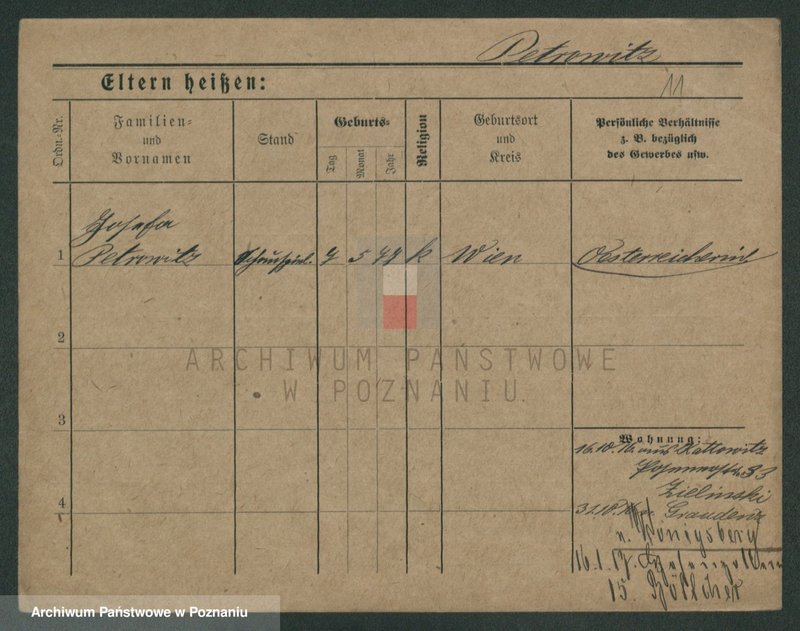 Petrowitz
Eltern heißen:
11
Ordn.-Nr.
Familien-
und
Vornamen
Stand
Geburts-
Tag
Monat
Jahr
Religion
Geburtsort
und
Kreis
Persönliche Verhältnisse
z. B. bezüglich
des Gewerbes usw.
Josefa
1 Petrowitz Schauspiel. 5 k Wien Oesterreicherin
2
3
4
ARCHIWUM PAŃSTWOWE
W POZNANIU
Wohnung:
16.10.16. aus Kattowitz
33
Zielinski
31.10. Graudenz
n. Königsberg
16.1.17.
15. Böttcher
Archiwum Państwowe w Poznaniu